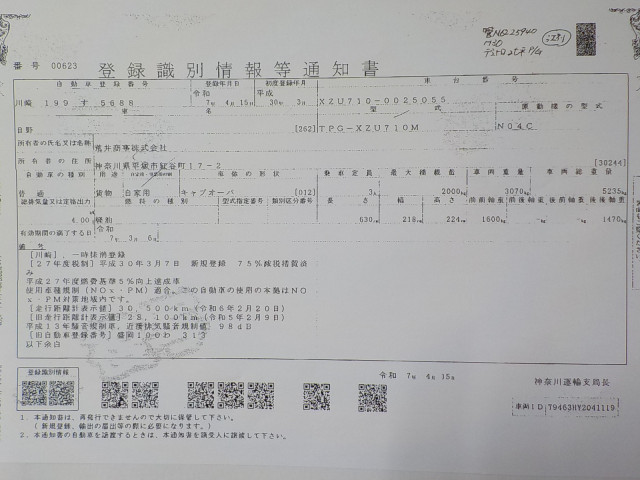 番号 00623 登録識別情報等通知書
自動車登録番号 登録年月日 初度登録年月 車台番号
川崎 199 す 5688 令和 7年 4月 15日 平成 30年 3月 XZU710-0025055
車名 型式 原動機の型式
日野 [262] TPG-XZU710M N04C
所有者の氏名又は名称 荒井商事株式会社
所有者の住所 神奈川県平塚市紅谷町17-2 [30244]
自動車の種別 用途 車体の形状 乗車定員 最大積載量 車両重量 車両総重量
普通 貨物 自家用 キャブオーバ [012] 3人 2000kg 3070kg 5235kg
総排気量又は定格出力 燃料の種類 型式指定番号 類別区分番号 長さ 幅 高さ 前前軸重 前後軸重 後前軸重 後後軸重
4.00 軽油 630cm 218cm 224cm 1600kg -kg -kg 1470kg
有効期間の満了する日 令和 7年 3月 6日
備考
[川崎],一時抹消登録
[27年度税制]平成30年3月7日 新規登録 75%減税措置済
み
平成27年度燃費基準5%向上達成車
使用車種規制(NOx・PM)適合,この自動車の使用の本拠はNO
x・PM対策地域内です。
[走行距離計表示値]30,500km(令和6年2月20日)
[旧走行距離計表示値]28,100km(令和5年2月9日)
平成13年騒音規制車,近接排気騒音規制値 98dB
[旧自動車登録番号]盛岡100わ 313
以下余白
登録識別情報
令和 7年 4月 15日
神奈川運輸支局長
車両ID 79463HY2041119
1.本通知書は、再発行できませんので大切に保管して下さい。
(新規登録、輸出の届出等の際に必要になります。)
2.本通知書の自動車を譲渡するときは、本通知書を譲受人に譲渡して下さい。